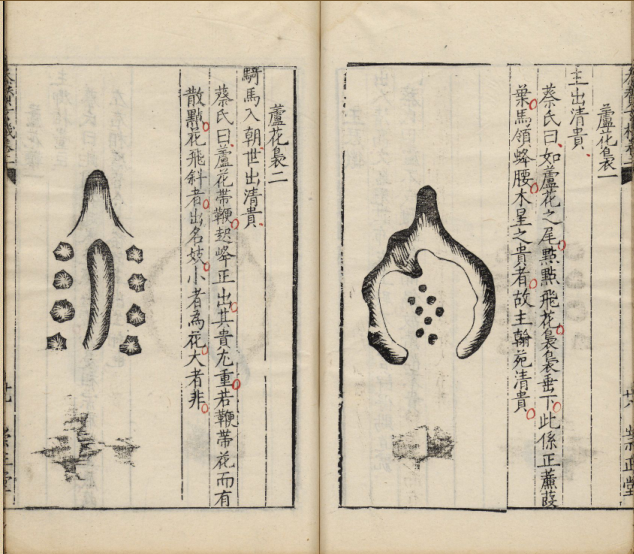 蘆花裊一
主出清貴
蔡氏曰如蘆花之尾點點飛花裊裊垂下此係正蘼葭
葉馬領蜂腰木星之貴者故主翰苑清貴
蘆花裊二
騎馬入朝世出清貴
蔡氏曰蘆花帶鞭起峰正出其貴尤重若鞭帶花而有
散點花飛斜者出名妓小者為花大者非
崇正堂